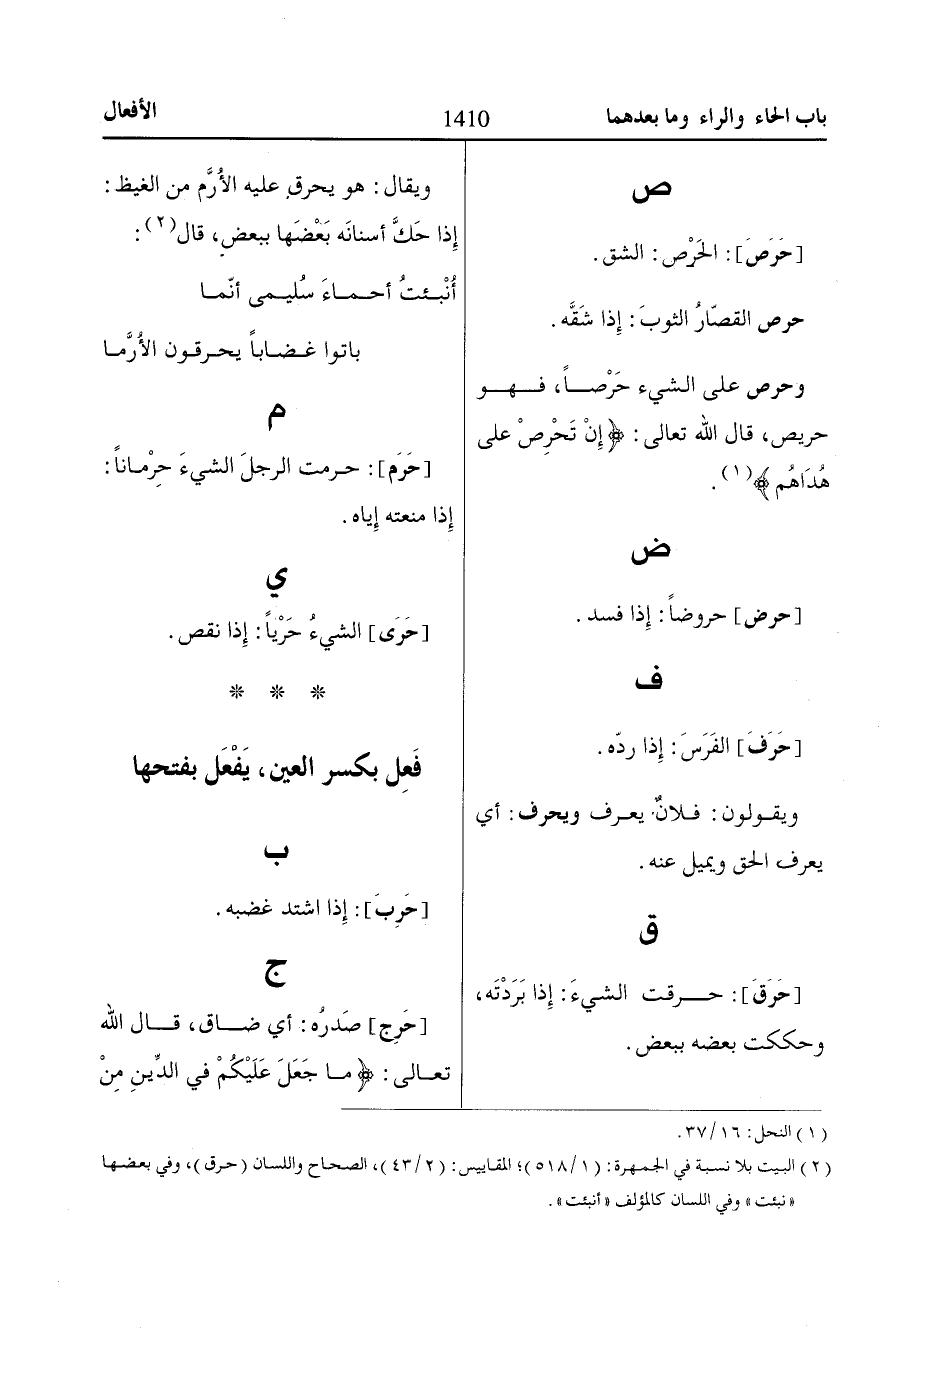 باب الحاء والراء وما بعدهما
1410
الأفعال
ص
[حَرَصَ]: الحَرْص: الشق.
حرص القصّارُ الثوبَ: إذا شَقَّه.
وحرص على الشيء حَرْصــاً، فــهــو
حريص، قال الله تعالى: ﴿إِنْ تَحْرِصْ على
هُدَاهُم﴾(١).
ض
[حرض] حروضاً: إذا فسد.
ف
[حَرَفَ] الفَرَسَ: إذا ردّه.
ويقـولون: فـلانٌ يعـرف ويحرف: أي
يعرف الحق ويميل عنه.
ق
[حَرَقَ]: حــرقت الشيءَ: إذا بَرَدْتَه،
وحككت بعضه ببعض.
ويقال: هو يحرق عليه الأُرَّم من الغيظ:
إذا حَكَّ أسنانَه بَعْضَها ببعض، قال(٢):
أُنْبـئتُ أحـمـاءَ سُليـمى أنّما
باتوا غـضـاباً يحـرقـون الأُرَّمـا
م
[حَرَم]: حـرمت الرجلَ الشيءَ حِرْمـاناً:
إذا منعته إياه.
ي
[حَرَى] الشيءُ حَرْياً: إذا نقص.
* * *
فَعِل بكسر العين، يَفْعَل بفتحها
ب
[حَرِبَ]: إذا اشتد غضبه.
ج
[حَرِج] صَدرُه: أي ضــاق، قــال الله
تعـالى: ﴿مـا جَعَلَ عَلَيْكُمْ في الدِّينِ مِنْ
(١) النحل: ٣٧/١٦.
(٢) البيت بلا نسبة في الجمهرة: (٥١٨/١)؛ المقاييس: (٤٣/٢)، الصحاح واللسان (حرق)، وفي بعضـها
«نبئت» وفي اللسان كالمؤلف «أنبئت».